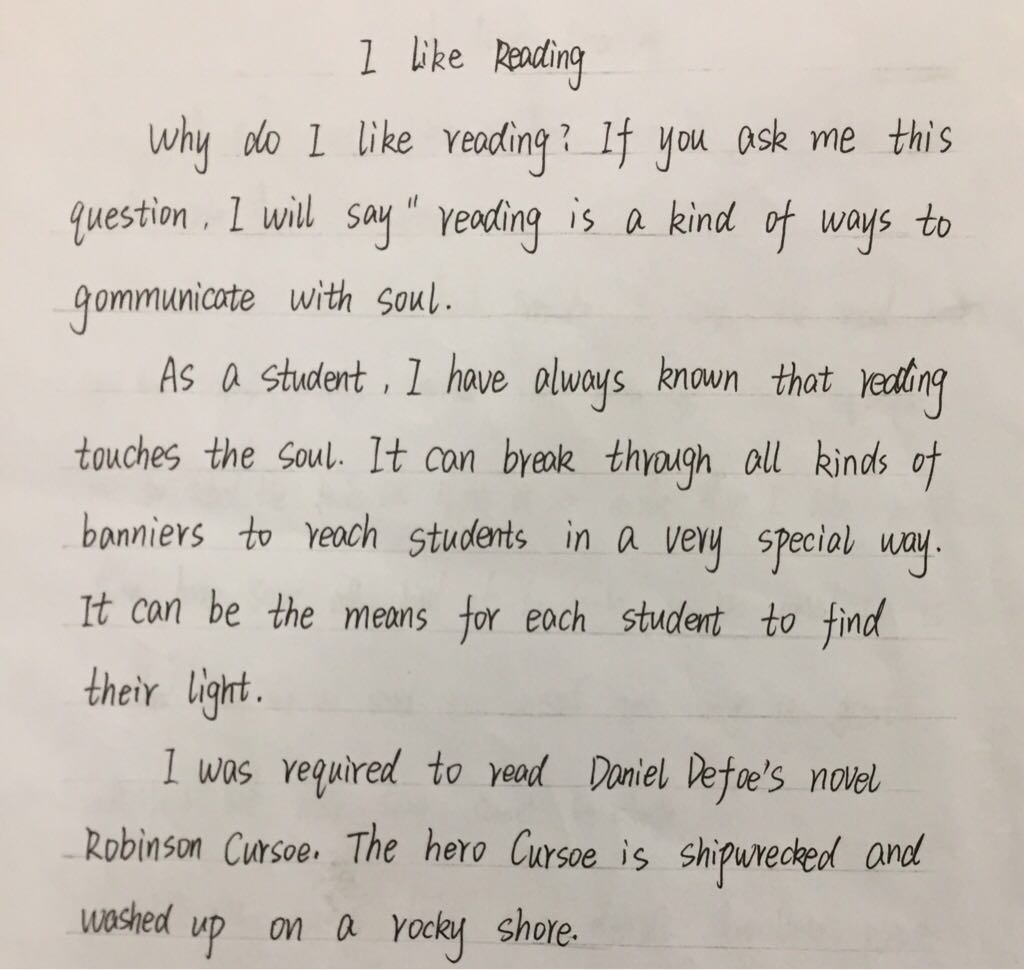 I like Reading
Why do I like reading? If you ask me this
question, I will say " reading is a kind of ways to
gommunicate with soul.
As a student, I have always known that reading
touches the soul. It can break through all kinds of
banniers to reach students in a very special way.
It can be the means for each student to find
their light.
I was required to read Daniel Defoe's novel
Robinson Cursoe. The hero Cursoe is shipwrecked and
washed up on a rocky shore.